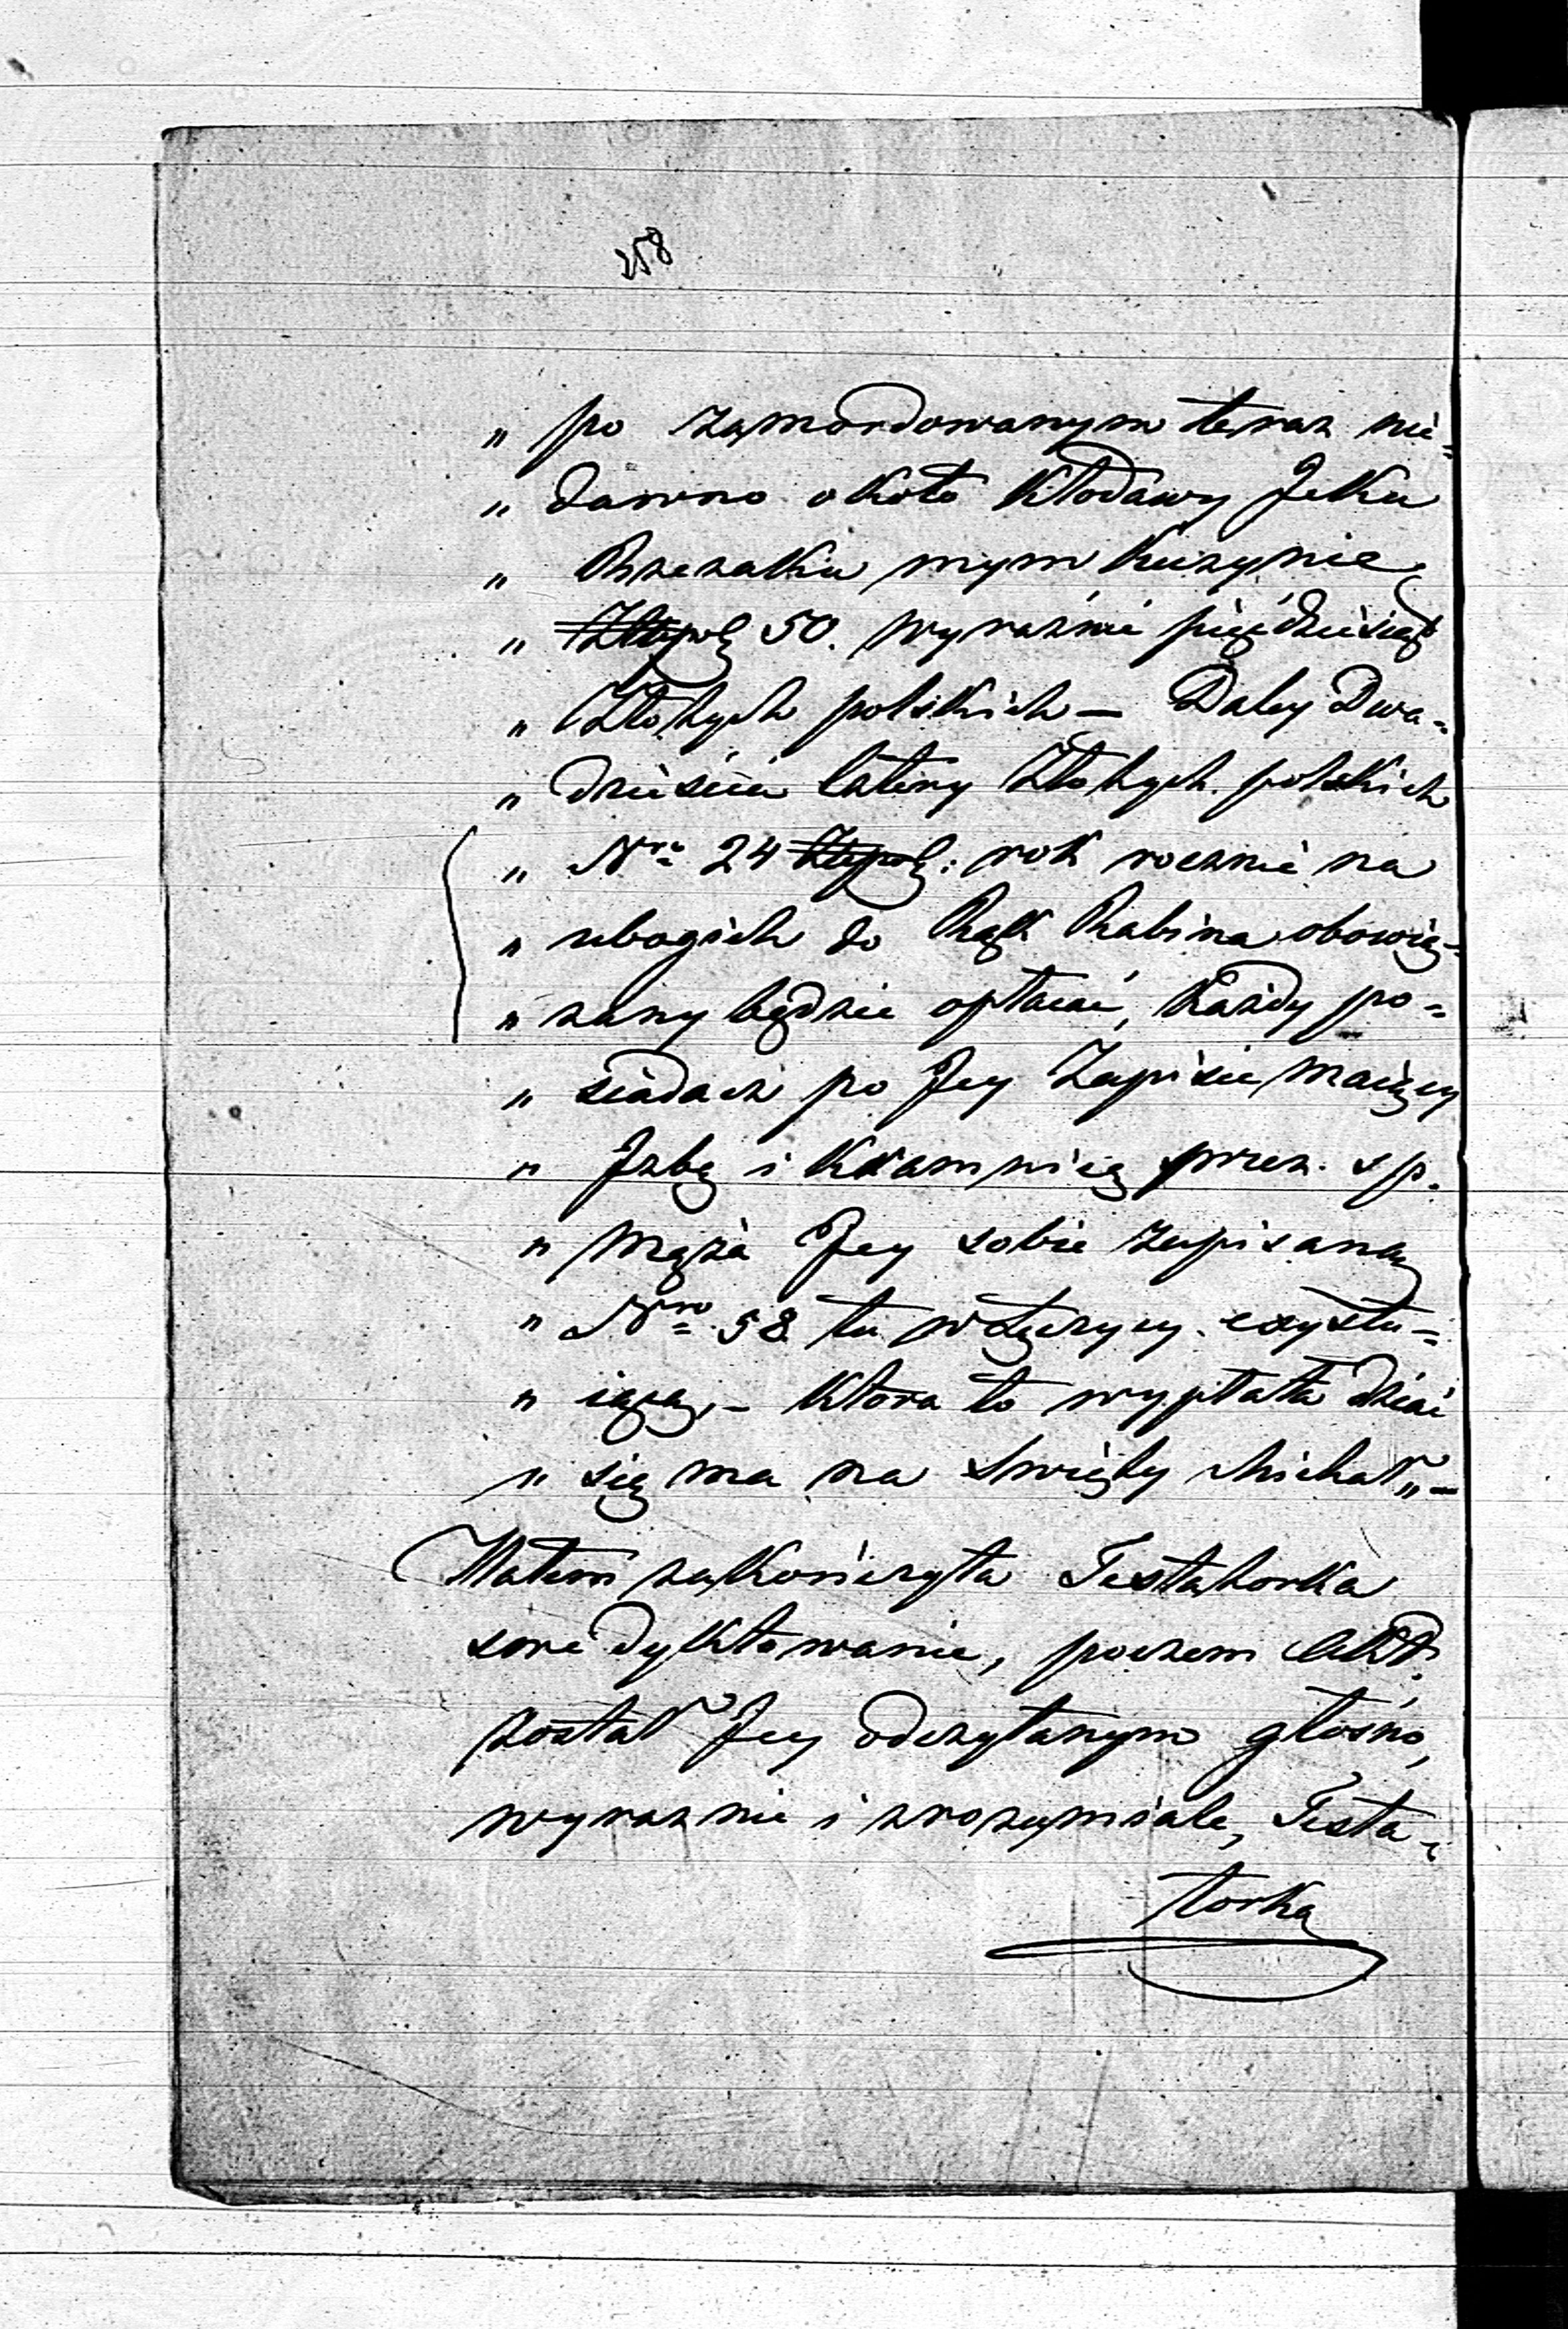 258
„ po zamordowanym teraz nie=
„ dawno około Kłodawy Jcku
„ Rzezaku mym Kuzynie
„ Złtpol 50. wyraźnie pięćdziesiąt
„ Złotych polskich — Daley Dwa=
„ dzieścia cztery Złotych polskich
„ Nro 24 Złtpol: rok rocznie na
„ ubogich do Rąk Rabina obowią=
„ zany będzie opłacać, każdy po=
„ siadacz po Jey Zapisie maiący
„ Jzbę i Kramnicę przez s p.
„ męża Jey sobie zapisaną
„ Nro 58 tu w Łęczycy exystu=
„ iącą, — która to wypłata dziać
„ się ma na Święty Michał „ —
Na tem zakończyła Testatorka
swe dyktowanie, poczem Akt
został Jey odczytanym głośno,
wyraznie i zrozumiale, Testa=
torka